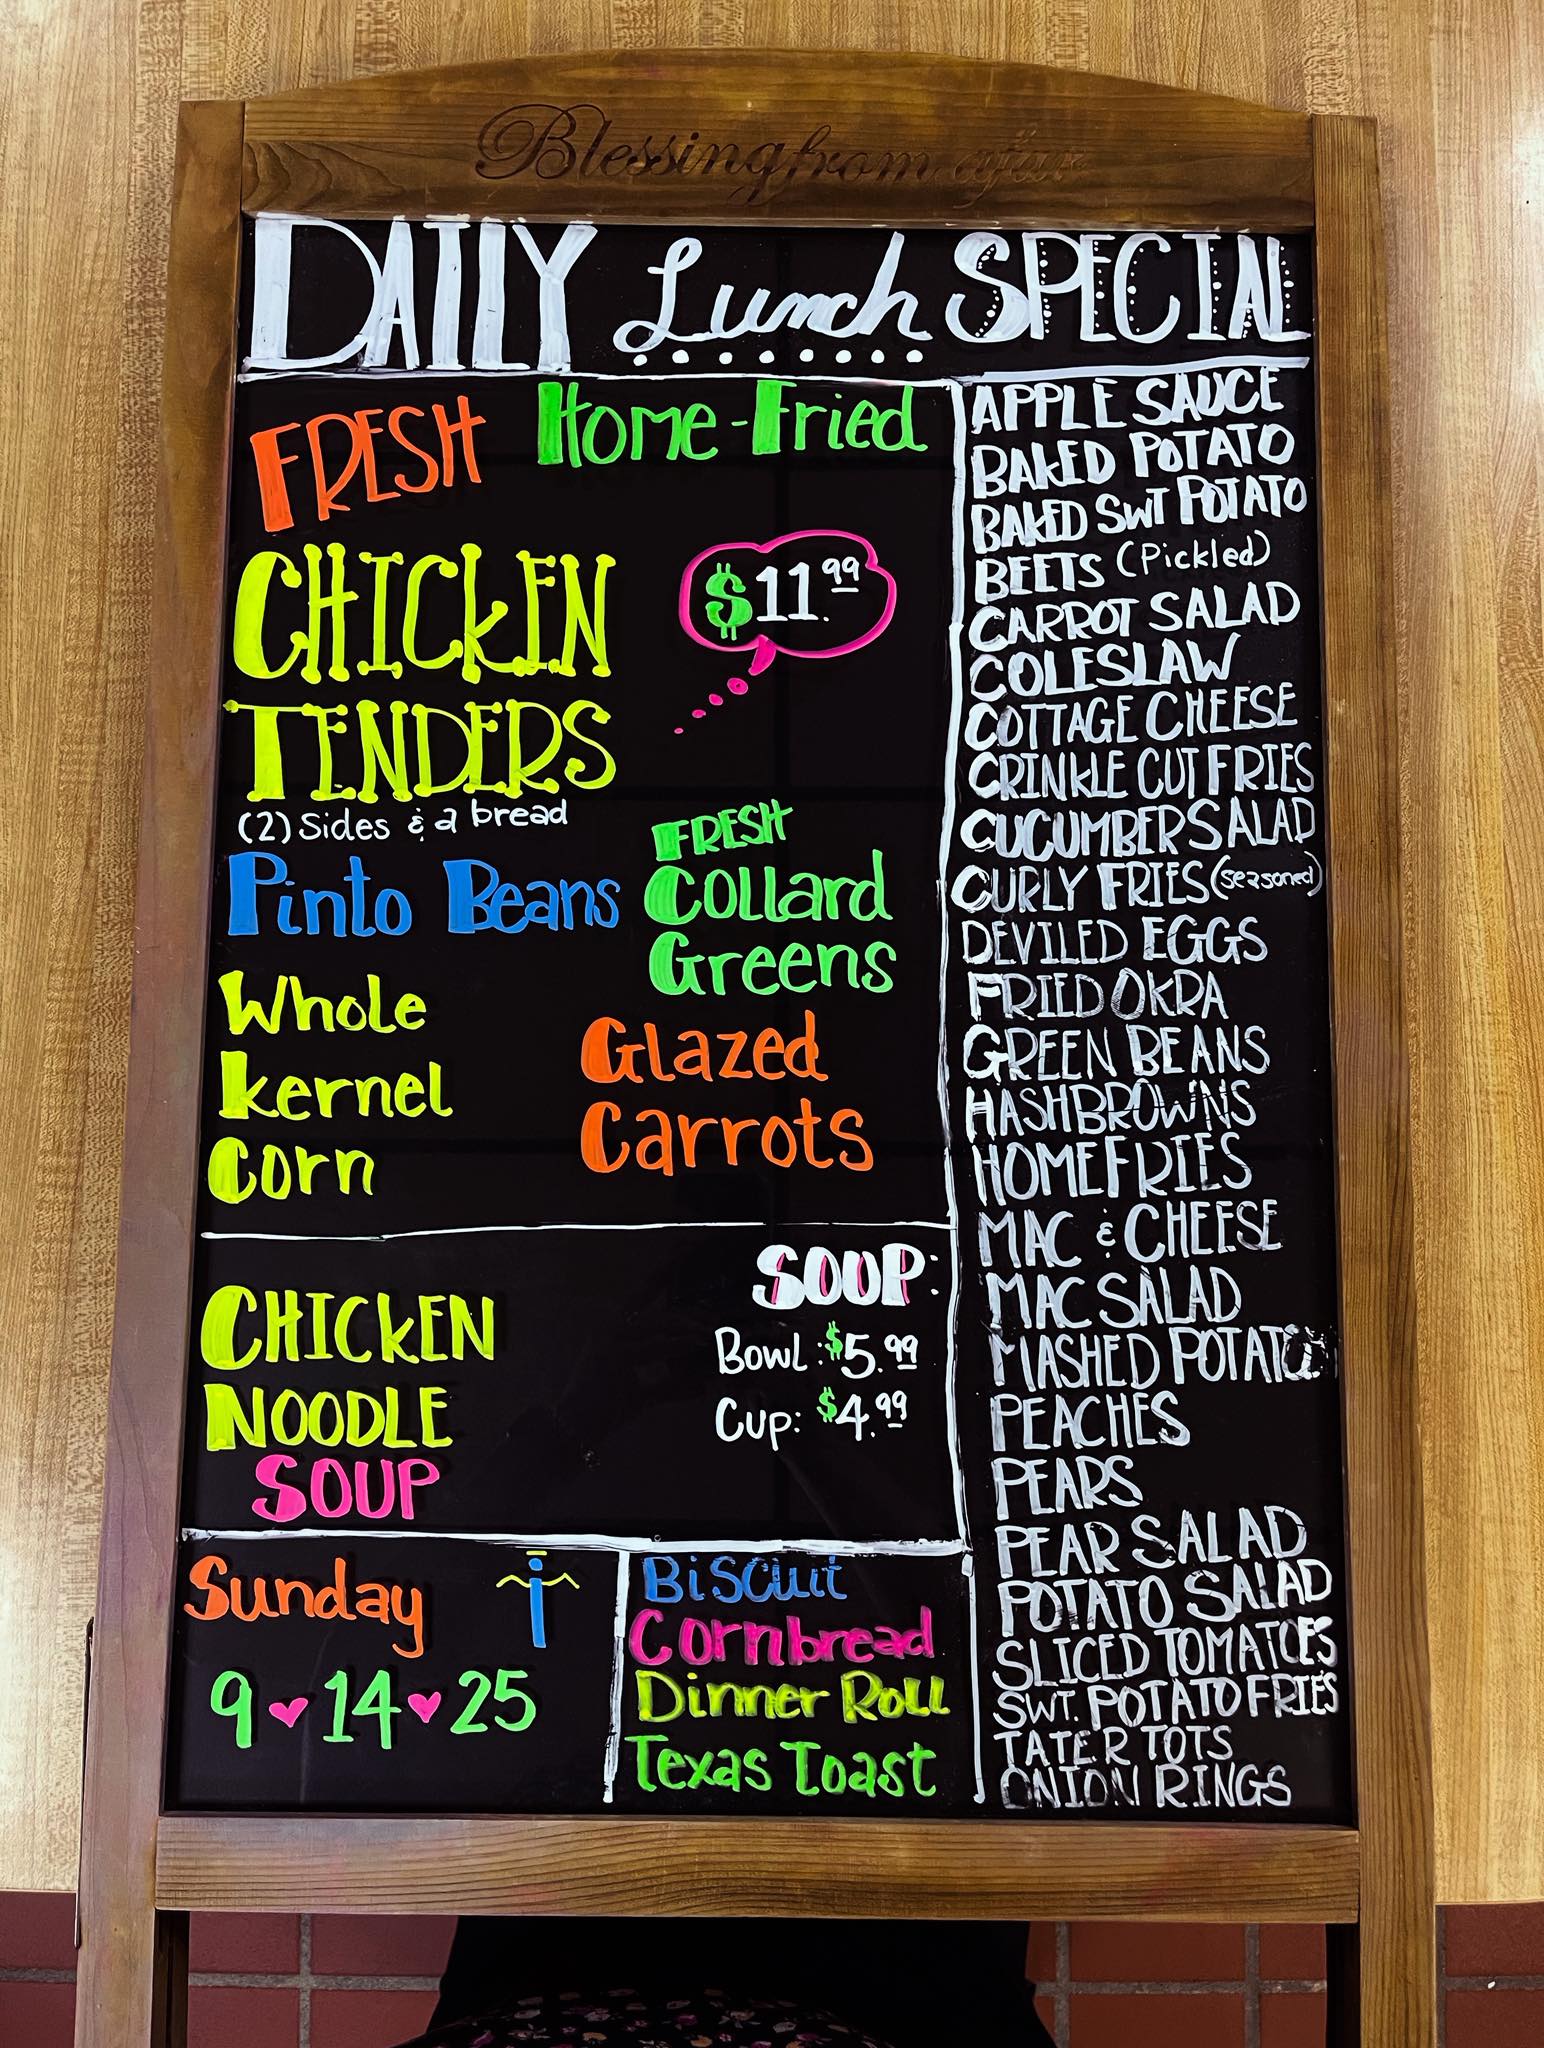 Blessing from afar
DAILY Lunch SPECIAL
FRESH Home-Fried
CHICKEN
TENDERS
$11.99
(2) Sides & a bread
Pinto Beans
FRESH
Collard
Greens
Whole
Kernel
Corn
Glazed
Carrots
CHICKEN
NOODLE
SOUP
SOUP:
Bowl: $5.99
Cup: $4.99
Sunday
9 14 25
Biscuit
Cornbread
Dinner Roll
Texas Toast
APPLE SAUCE
BAKED POTATO
BAKED SWT POTATO
BEETS (Pickled)
CARROT SALAD
COLESLAW
COTTAGE CHEESE
CRINKLE CUT FRIES
CUCUMBER SALAD
CURLY FRIES (seasoned)
DEVILED EGGS
FRIED OKRA
GREEN BEANS
HASHBROWNS
HOMEFRIES
MAC & CHEESE
MAC SALAD
MASHED POTATO
PEACHES
PEARS
PEAR SALAD
POTATO SALAD
SLICED TOMATOES
SWT. POTATO FRIES
TATER TOTS
ONION RINGS